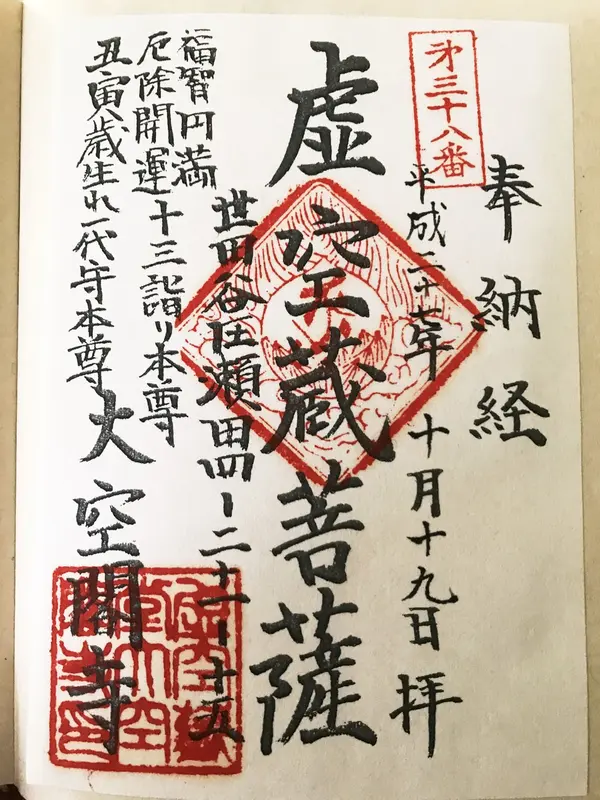 奉納経
第三十八番
平成二十七年十月十九日拝
虚空蔵菩薩
世田谷区瀬田四ー二十一ー十五
福智円満
厄除開運十三詣り本尊
丑寅歳生れ一代守本尊
大空閣寺